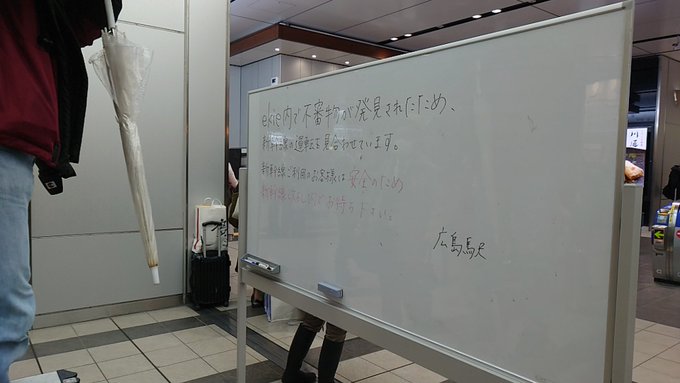 ekie内で不審物が発見されたため、
新幹線の運転を見合わせています。
新幹線ご利用のお客様は安全のため
新幹線 でお待ち下さい。
広島駅